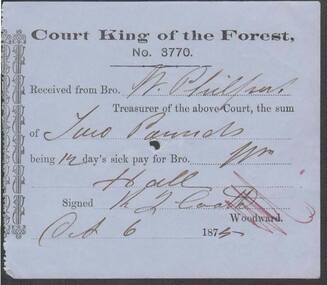 Court King of the Forest,
No. 3770.
Received from Bro. W. Philpot
Treasurer of the above Court, the sum
of Two Pounds
being 12 day's sick pay for Bro. Wm
Hall
Signed
Woodward.
Oct 6 1875